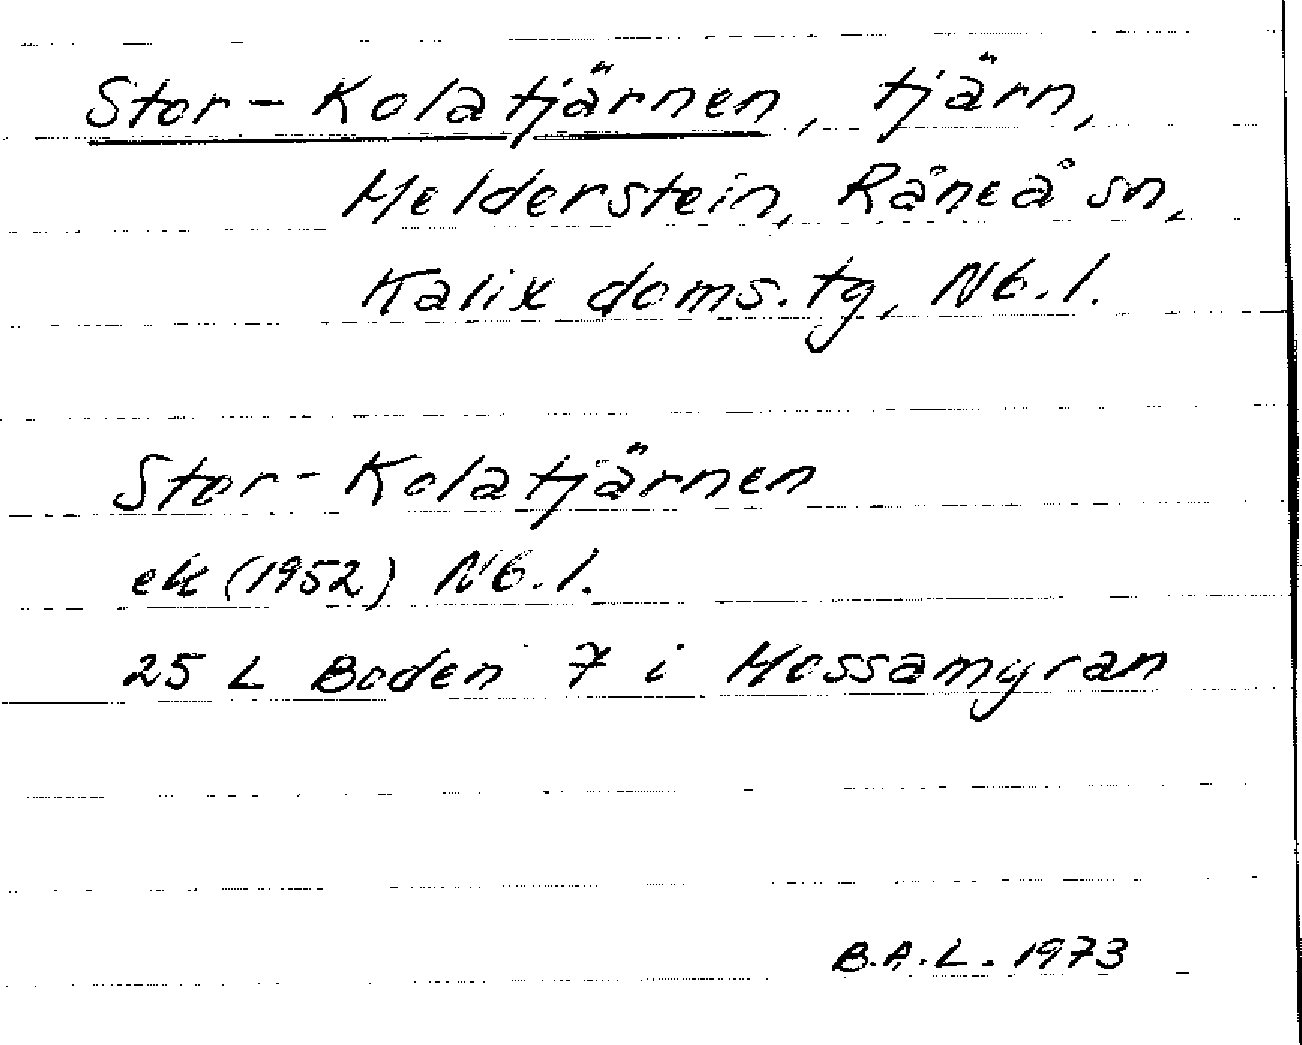 Stor-Kolatjärnen, tjärn,
Melderstein, Råneå sn,
Kalix doms.tg, Nb.l.
Stor-Kolatjärnen
ek (1952) Nb.l.
25 L Boden 7 i Mossamyran
B.A.L. 1973